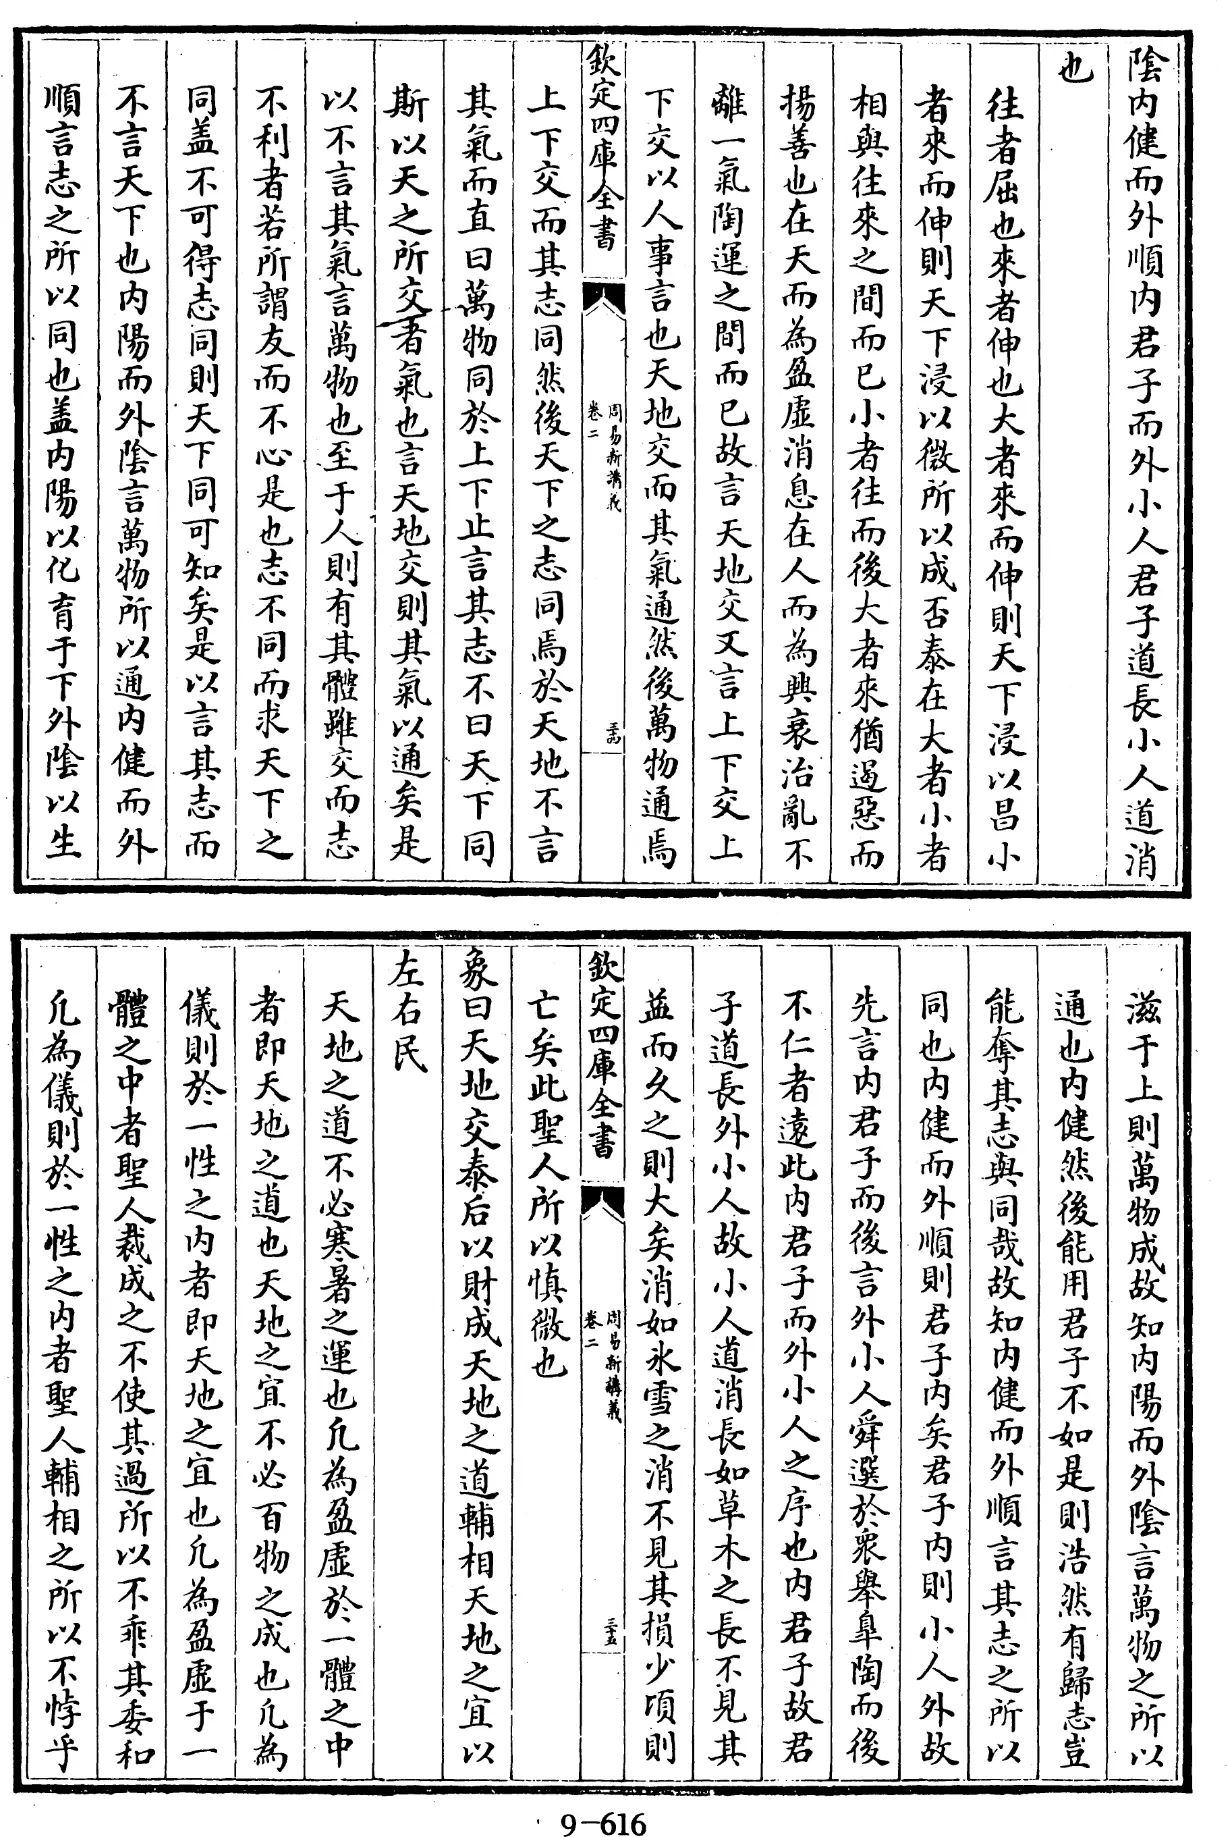 陰内健而外順内君子而外小人君子道長小人道消
也
往者屈也來者伸也大者來而伸則天下浸以昌小
者來而伸則天下浸以微所以成否泰在大者小者
相與徃來之間而已小者徃而後大者來猶遏惡而
揚善也在天而為盈虛消息在人而為興衰治亂不
離一氣陶運之間而已故言天地交又言上下交上
下交以人事言也天地交而其氣通然後萬物通焉
欽定四庫全書
周易新講義
卷二
三十四
上下交而其志同然後天下之志同焉於天地不言
其氣而直曰萬物同於上下止言其志不曰天下同
斯以天之所交者氣也言天地交則其氣以通矣是
以不言其氣言萬物也至于人則有其體雖交而志
不利者若所謂友而不心是也志不同而求天下之
同盖不可得志同則天下同可知矣是以言其志而
不言天下也内陽而外陰言萬物所以通内健而外
順言志之所以同也盖内陽以化育于下外陰以生
滋于上則萬物成故知内陽而外陰言萬物之所以
通也内健然後能用君子不如是則浩然有歸志豈
能奪其志與同哉故知内健而外順言其志之所以
同也内健而外順則君子内矣君子内則小人外故
先言内君子而後言外小人舜選於衆舉臯陶而後
不仁者遠此内君子而外小人之序也内君子故君
子道長外小人故小人道消長如草木之長不見其
益而久之則大矣消如氷雪之消不見其損少頃則
欽定四庫全書
周易新講義
卷二
三十五
亡矣此聖人所以慎微也
象曰天地交泰后以財成天地之道輔相天地之宜以
左右民
天地之道不必寒暑之運也凢為盈虛於一體之中
者即天地之道也天地之宜不必百物之成也凢為
儀則於一性之内者即天地之宜也凢為盈虛于一
體之中者聖人裁成之不使其過所以不乖其委和
凢為儀則於一性之内者聖人輔相之所以不悖乎
9-616